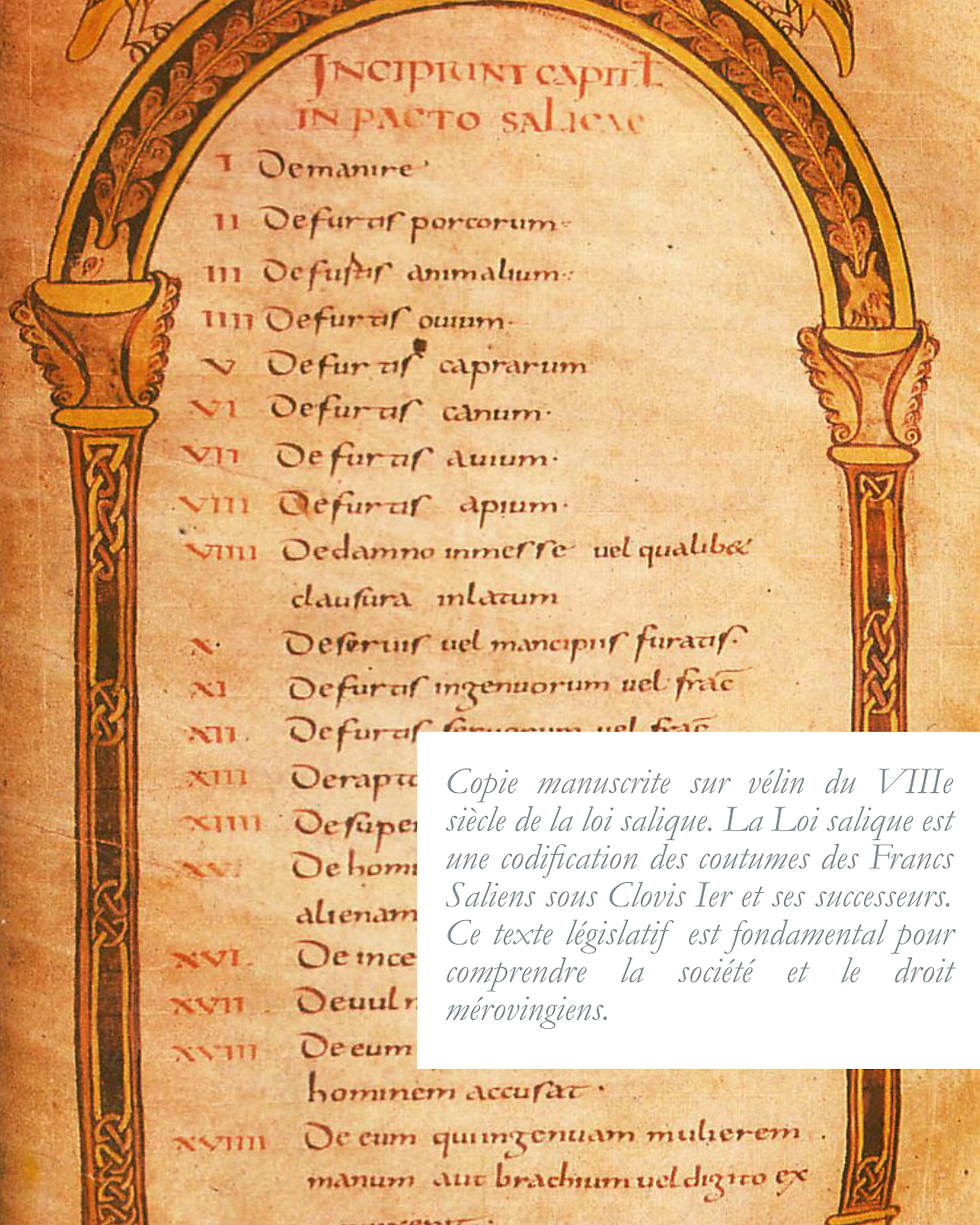 INCIPIUNT CAPITL
IN PACTO SALICAE
I Demanire
II Defurtis porcorum
III Defurtis animalium
IIII Defurtis ouium
V Defurtis caprarum
VI Defurtis canum
VII Defurtis auium
VIII Defurtis apium
VIIII Dedamno inmesse uel qualib&
clausura inlatum
X Deseruis uel mancipiis furatis
XI Defurtis ingenuorum uel frac
XII Defurtis seruorum uel frac
XIII Derapt
XIIII Desuper
XV De hom
alienam
XVI De ince
XVII Deuuln
XVIII De eum
hominem accusat
XVIIII De eum quiingenuam mulierem
manum aut brachium uel digito ex
Copie manuscrite sur vélin du VIIIe
siècle de la loi salique. La Loi salique est
une codification des coutumes des Francs
Saliens sous Clovis Ier et ses successeurs.
Ce texte législatif est fondamental pour
comprendre la société et le droit
mérovingiens.